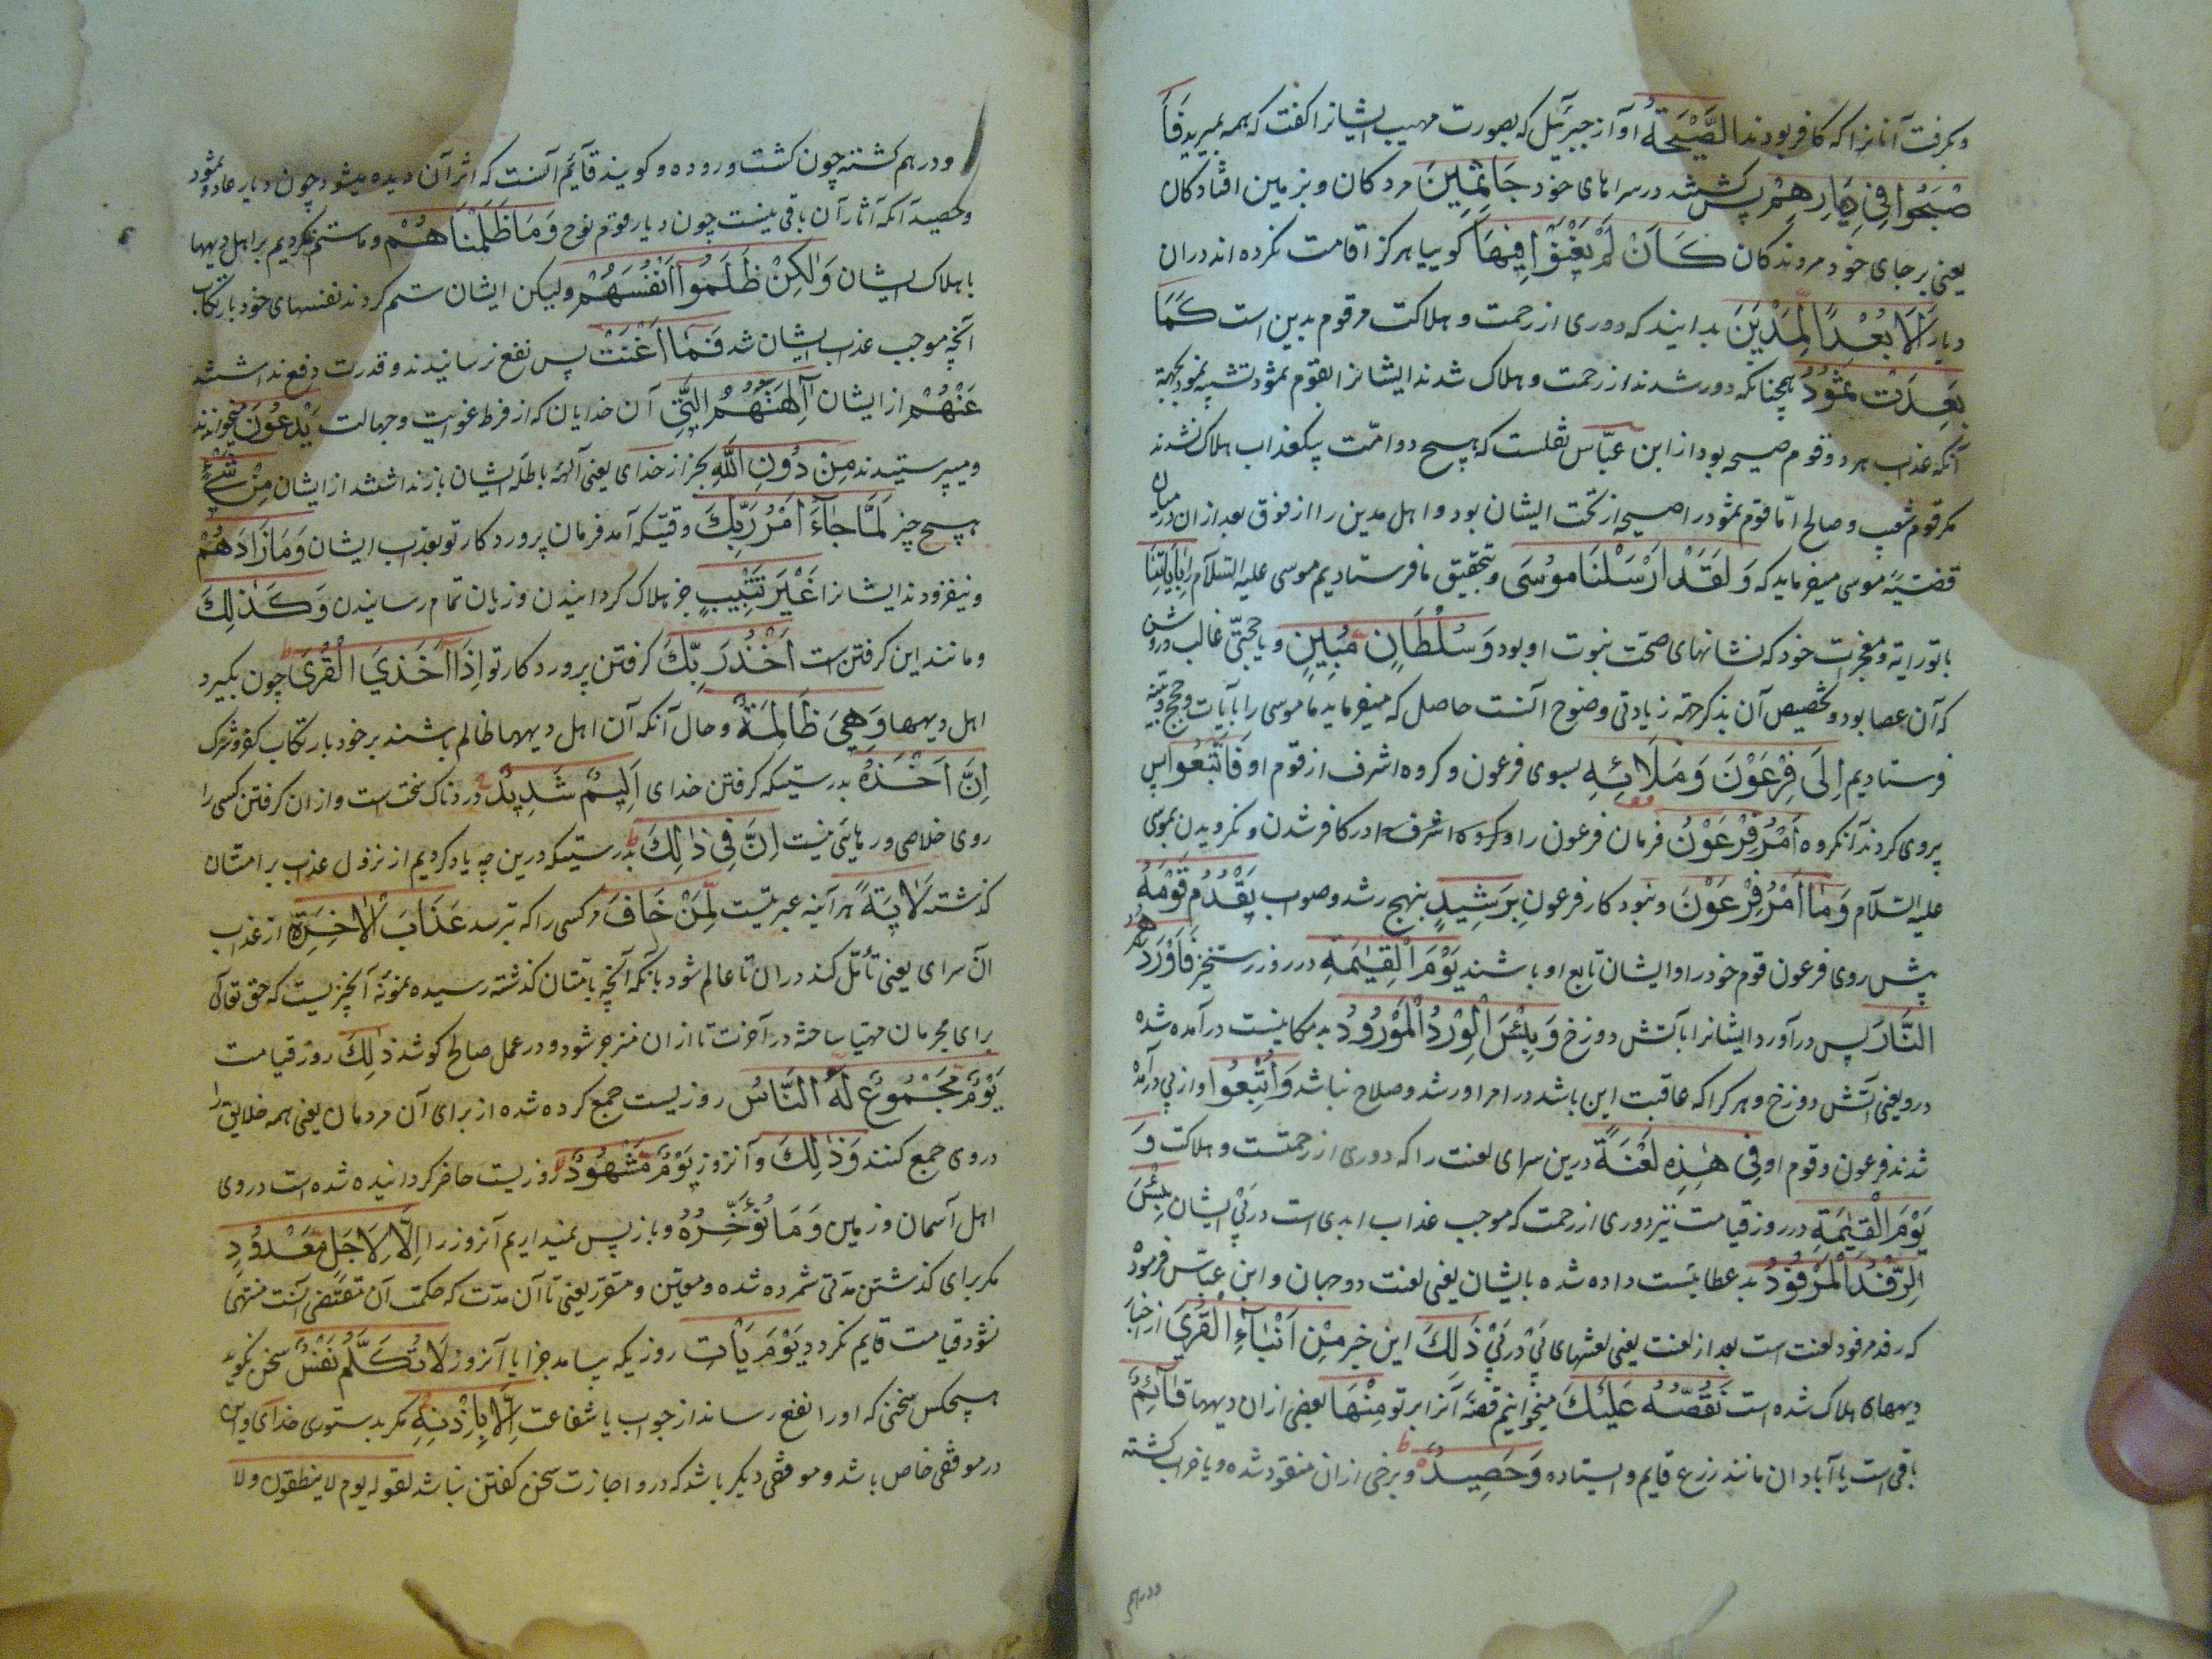 و بکرفت آنانرا که کافر بودند الصَّيْحَةُ اوآز جبرئیل که بصورت مهیب ایشانرا کفت که همه بمیرید فَاَ
صْبَحُوا فِي دِيَارِهِمْ پس کشتند در سراهای خود جَاثِمِينَ مردکان و بر زمین افتادکان
یعنی بر جای خود مردندکان كَاَنْ لَمْ يَغْنَوْا فِيهَا کوییا هرکز اقامت نکرده اند دران
دیار اَلَا بُعْدًا لِمَدْيَنَ بدانید که دوری از رحمت و هلاکت مر قوم مدین است كَمَا
بَعِدَتْ ثَمُودُ همچنانکه دور شدند از رحمت و هلاک شدند ایشانرا بقوم ثمود تشبیه نمود بجهة
آنکه عذاب هر دو قوم صیحه بود از ابن عبّاس نقلست که هیچ دو امّت بیکعذاب هلاک نشدند
مکر قوم شعیب و صالح امّا قوم ثمود را صیحه از تحت ایشان بود و اهل مدین را از فوق بعد ازان در بیان
قضیّهٔ موسی میفرماید که وَلَقَدْ اَرْسَلْنَا مُوسَى و بتحقیق ما فرستادیم موسی علیه السّلام را بِآيَاتِنَا
با توراته و معجزات خود که نشانهای صحّت نبوت او بود وَسُلْطَانٍ مُبِينٍ و با حجّتی غالب و روشن
که آن عصا بود و تخصیص آن بذکر جهة زیادتی وضوح آنست حاصل که میفرماید ما موسی را بآیات و حجج و بیّنه
فرستادیم اِلَى فِرْعَوْنَ وَمَلَائِهِ بسوی فرعون و کروه اشرف از قوم او فَاتَّبَعُوا پس
پیروی کردند آنکروه اَمْرَ فِرْعَوْنَ فرمان فرعون را و کروه اشرف در کافر شدن و نکرویدن بموسی
علیه السّلام وَمَا اَمْرُ فِرْعَوْنَ و نبود کار فرعون بِرَشِيدٍ بنهج رشد و صواب يَقْدُمُ قَوْمَهُ
پیش روی فرعون قوم خود را و ایشان تابع او باشند يَوْمَ الْقِيٰمَةِ در روز رستخیز فَاَوْرَدَهُمُ
النَّارَ پس درآورد ایشانرا بآتش دوزخ وَبِئْسَ الْوِرْدُ الْمَوْرُودُ بد مکانیست درآمده شده
درو یعنی آتش دوزخ و هر کرا که عاقبت این باشد در امر او رشد و صلاح نباشد وَاُتْبِعُوا و از پی درآمده
شدند فرعون و قوم او فِي هٰذِهِ لَعْنَةً درین سرای لعنت را که دوری از رحمتست و هلاکت وَ
يَوْمَ الْقِيٰمَةِ در روز قیامت نیز دوری از رحمت که موجب عذاب ابدی است در پی ایشان بِئْسَ
الرِّفْدُ الْمَرْفُودُ بد عطائیست داده شده بایشان یعنی لعنت دو جهان و ابن عبّاس فرمود
که رفد مرفود لعنت است بعد از لعنت یعنی لعنتهای پی در پی ذٰلِكَ این خبر مِنْ اَنْبَاءِ الْقُرَى از اخبار
دیههای هلاک شده است نَقُصُّهُ عَلَيْكَ میخوانیم قصّهٔ آنرا بر تو مِنْهَا بعضی ازان دیهها قَائِمٌ
باقی است یا آبادان مانند زرع قایم و ایستاده وَحَصِيدٌ و برخی ازان مفقود شده و یا خراب کشته
ودرهم
ودرهم کشته چون کشت دروده و کویند قآئم آنست که اثر آن دیده میشود چون دیار عاد و ثمود
وحصید آنکه آثار آن باقی نیست چون دیار قوم نوح وَمَا ظَلَمْنَاهُمْ و ما ستم نکردیم بر اهل دیهها
باهلاک ایشان وَلٰكِنْ ظَلَمُوا اَنْفُسَهُمْ ولیکن ایشان ستم کردند نفسهای خود بارتکاب
آنچه موجب عذاب ایشان شد فَمَا اَغْنَتْ پس نفع نرسانیدند و قدرت دفع نداشتند
عَنْهُمْ از ایشان آلِهَتُهُمُ الَّتِي آن خدایان که از فرط غوایت و جهالت يَدْعُونَ میخواندند
و میپرستیدند مِنْ دُونِ اللّٰهِ بجز از خدای یعنی آلههٔ باطلهٔ ایشان باز نداشتند از ایشان مِنْ شَيْءٍ
هیچ چیز لَمَّا جَاءَ اَمْرُ رَبِّكَ وقتیکه آمد فرمان پروردکار تو بعذاب ایشان وَمَا زَادُوهُمْ
و نیفزودند ایشانرا غَيْرَ تَتْبِيبٍ جز هلاک کردانیدن و زیان تمام رسانیدن وَكَذٰلِكَ
و مانند این کرفتن است اَخْذُ رَبِّكَ کرفتن پروردکار تو اِذَا اَخَذَ الْقُرَى چون بکیرد
اهل دیهها وَهِيَ ظَالِمَةٌ و حال آنکه آن اهل دیهها ظالم باشند بر خود بارتکاب کفر و شرک
اِنَّ اَخْذَهُ بدرستیکه کرفتن خدای اَلِيمٌ شَدِيدٌ دردناک سخت است و ازان کرفتن کسی را
روی خلاصی و رهایی نیست اِنَّ فِي ذٰلِكَ بدرستیکه درین چه یاد کردیم از نزول عذاب بر امتان
کذشته لَاٰيَةً هر آینه عبرتیست لِمَنْ خَافَ مر کسی را که بترسد عَذَابَ الْاٰخِرَةِ از عذاب
آن سرای یعنی تأمّل کند دران تا عالم شود بآنکه آنچه بامتان کذشته رسیده نمونهٔ آنچیزیست که حق تعالی
برای مجرمان مهیّا ساخته در آخرت تا ازان منزجر شود و در عمل صالح کوشد ذٰلِكَ روز قیامت
يَوْمٌ مَجْمُوعٌ لَهُ النَّاسُ روزیست جمع کرده شده از برای آن مردمان یعنی همه خلایق را
دروی جمع کنند وَذٰلِكَ و آنروز يَوْمٌ مَشْهُودٌ روزیست حاضر کردانیده شده است دروی
اهل آسمان و زمین وَمَا نُؤَخِّرُهُ و باز پس نمیداریم آنروز را اِلَّا لِاَجَلٍ مَعْدُودٍ
مکر برای کذشتن مدّتی شمرده شده و معیّن و مقرّر یعنی تا آن مدّت که حکمت آن مقتضی آنست منتهی
نشود قیامت قایم نکردد يَوْمَ يَأْتِ روزیکه بیامد جزا یا آنروز لَا تُكَلَّمُ نَفْسٌ سخن نکوید
هیچکس سخنی که او را نفع رساند از جواب یا شفاعت اِلَّا بِاِذْنِهِ مکر بدستوری خدای و این
در موقفی خاص باشد و موقفی دیکر باشد که درو اجازت سخن کفتن نباشد لقوله یوم لا ینطقون ولا